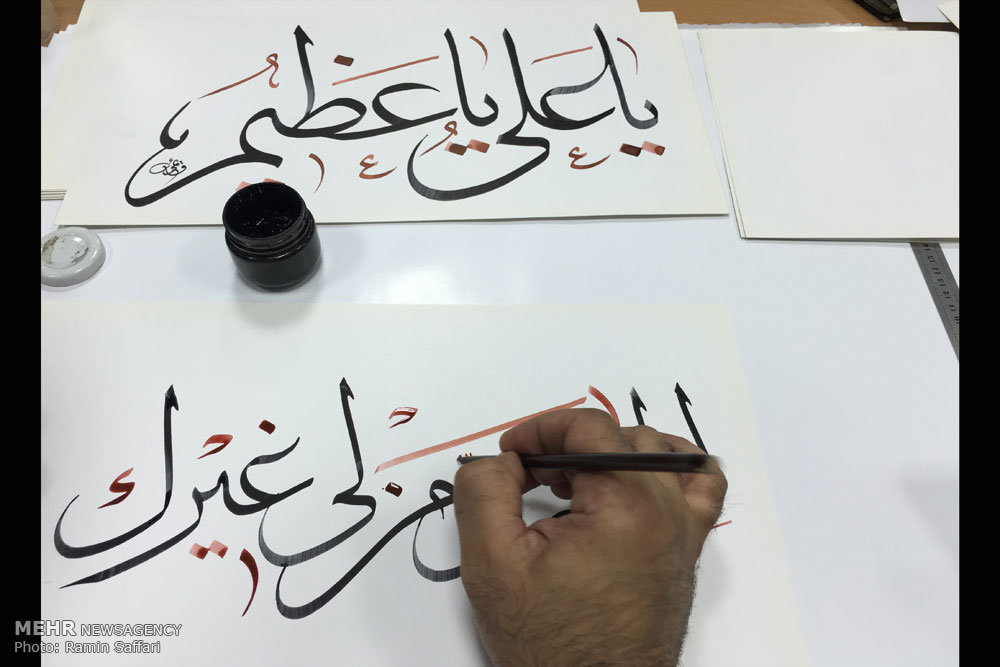 يا علي يا عظيم
من لي غيرك
MEHR NEWSAGENCY
Photo: Ramin Saffari